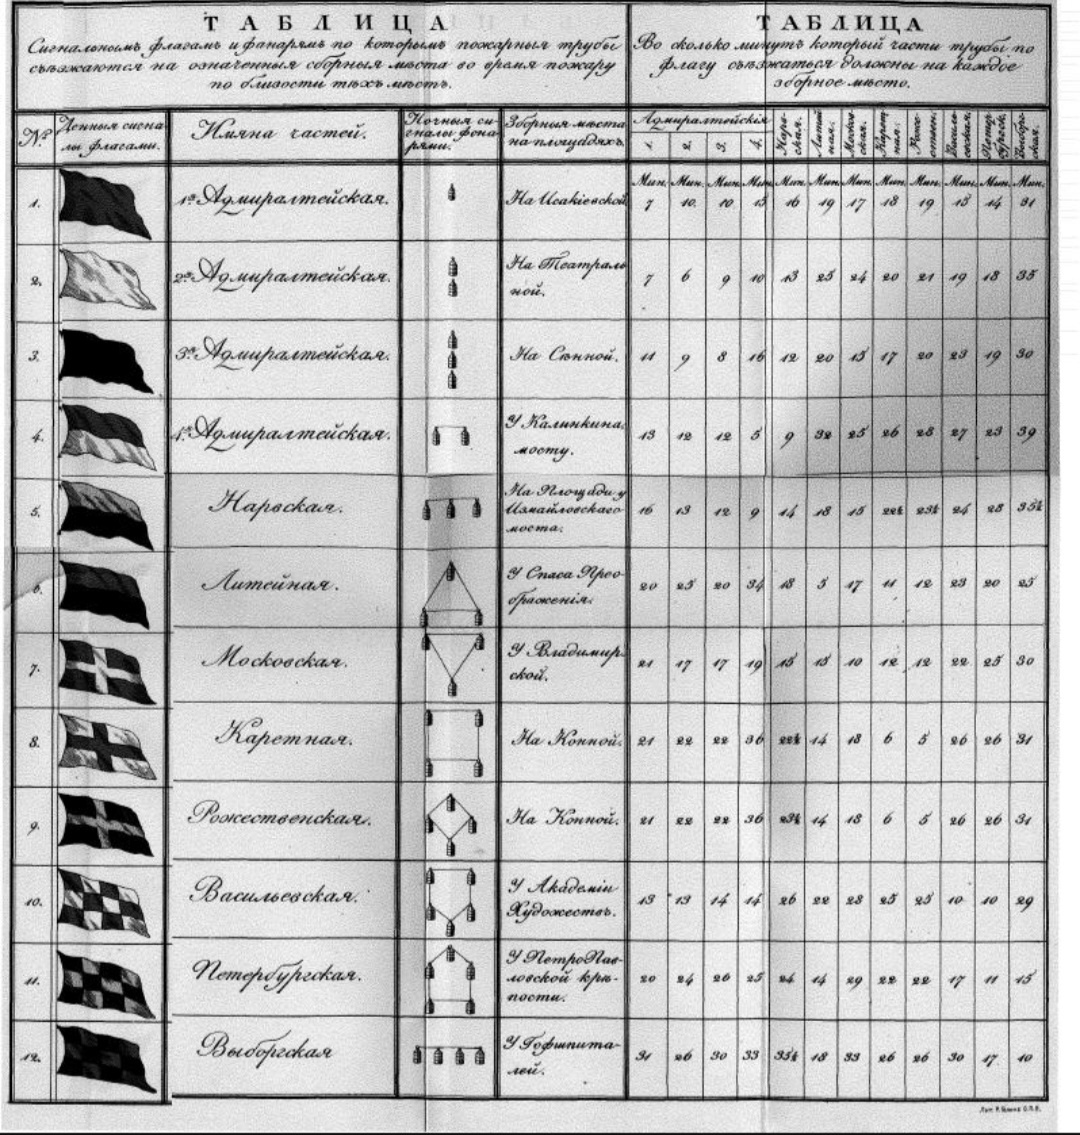 ТАБЛИЦА
Сигнальнымъ флагамъ и фанарямъ по которымъ пожарныя трубы
съѣзжаются на означенныя сборныя мѣста во время пожару
по близости тѣхъ мѣстъ.
ТАБЛИЦА
Во сколько минутъ который части трубы по
флагу съѣзжаться должны на каждое
зборное мѣсто.
№
Денныя сигна-
лы флагами.
Имяна частей.
Ночныя си-
гналы фона-
рями.
Зборныя мѣста
на площадяхъ.
Адмиралтейскія
1. 2. 3. 4.
Нарв-
ская.
Литей-
ная.
Москов-
ская.
Карет-
ная.
Рожес-
ствен.
Василь-
евская.
Петер-
бургск.
Выборг-
ская.
Мин. Мин. Мин. Мин. Мин. Мин. Мин. Мин. Мин. Мин. Мин. Мин.
1. 1я Адмиралтейская. На Исакіевской 7 10 10 15 16 19 17 18 19 15 14 31
2. 2я Адмиралтейская. На Театраль
ной. 7 6 9 10 13 25 24 20 21 19 18 35
3. 3я Адмиралтейская. На Сѣнной. 11 9 8 16 12 20 15 17 20 23 19 30
4. 4я Адмиралтейская. У Калинкина
мосту. 13 12 12 5 9 32 25 26 28 27 23 39
5. Нарвская. На Площади у
Измайловскаго
моста. 16 13 12 9 14 18 15 22½ 23½ 24 28 35½
6. Литейная. У Спаса Прео-
браженія. 20 25 20 34 18 5 17 11 12 23 20 25
7. Московская. У Владимир-
ской. 21 17 17 19 15 15 10 12 12 22 25 30
8. Каретная. На Конной. 21 22 22 36 22½ 14 18 6 5 26 26 31
9. Рожественская. На Конной. 21 22 22 36 23½ 14 18 6 5 26 26 31
10. Васильевская. У Академіи
Художествъ. 13 13 14 14 26 22 28 25 25 10 10 29
11. Петербургская. У ПетроПав-
ловской крѣ-
пости. 20 24 26 25 24 14 29 22 22 17 11 15
12. Выборгская У Гофшпита-
лей. 31 26 30 33 35½ 18 33 26 26 30 17 10